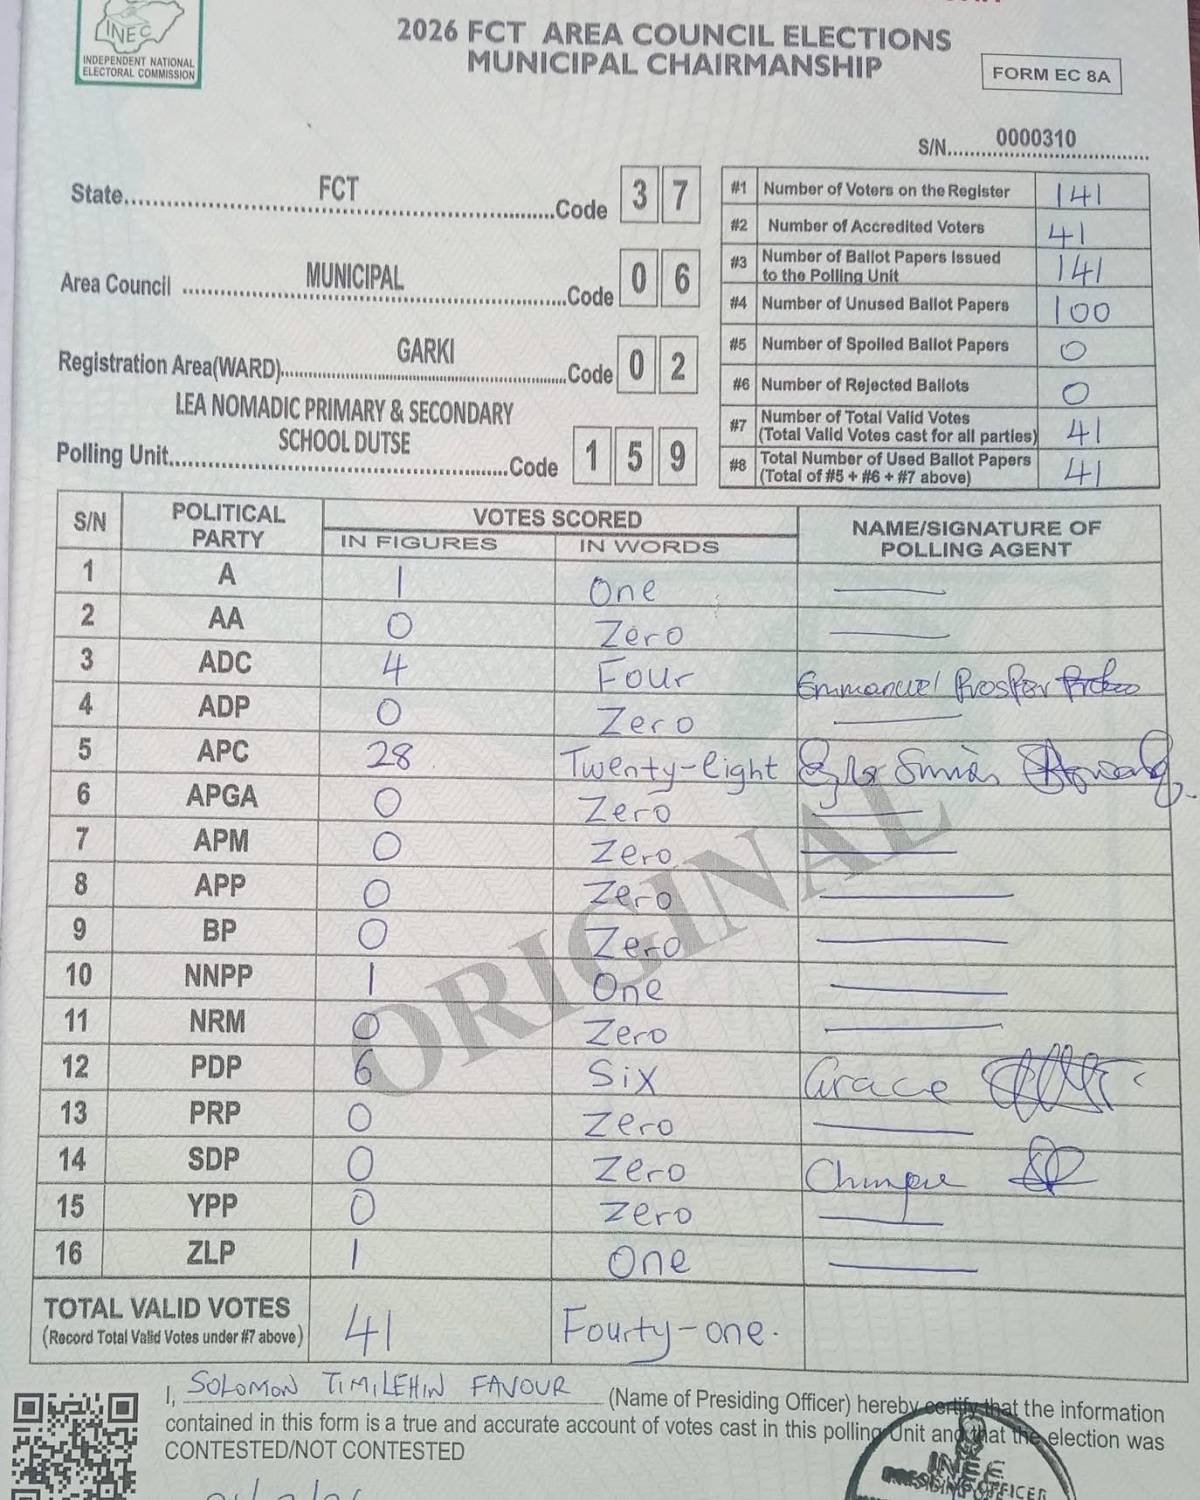 INEC
INDEPENDENT NATIONAL
ELECTORAL COMMISSION
2026 FCT AREA COUNCIL ELECTIONS
MUNICIPAL CHAIRMANSHIP
FORM EC 8A
S/N..... 0000310
State..... FCT .....Code 3 7
Area Council ..... MUNICIPAL .....Code 0 6
Registration Area(WARD)..... GARKI .....Code 0 2
LEA NOMADIC PRIMARY & SECONDARY
SCHOOL DUTSE
Polling Unit..........Code 1 5 9
#1 Number of Voters on the Register 141
#2 Number of Accredited Voters 41
#3 Number of Ballot Papers Issued
to the Polling Unit 141
#4 Number of Unused Ballot Papers 100
#5 Number of Spoiled Ballot Papers 0
#6 Number of Rejected Ballots 0
#7 Number of Total Valid Votes
(Total Valid Votes cast for all parties) 41
#8 Total Number of Used Ballot Papers
(Total of #5 + #6 + #7 above) 41
S/N POLITICAL PARTY VOTES SCORED NAME/SIGNATURE OF POLLING AGENT
IN FIGURES IN WORDS
1 A 1 One
2 AA 0 Zero
3 ADC 4 Four Emmanuel Prosper
4 ADP 0 Zero
5 APC 28 Twenty-eight
6 APGA 0 Zero
7 APM 0 Zero
8 APP 0 Zero
9 BP 0 Zero
10 NNPP 1 One
11 NRM 0 Zero
12 PDP 6 Six Grace
13 PRP 0 Zero
14 SDP 0 Zero
15 YPP 0 Zero
16 ZLP 1 One
ORIGINAL
TOTAL VALID VOTES 41 Fourty-one.
(Record Total Valid Votes under #7 above)
I, SOLOMON TIMILEHIN FAVOUR (Name of Presiding Officer) hereby certify that the information
contained in this form is a true and accurate account of votes cast in this polling Unit and that the election was
CONTESTED/NOT CONTESTED
INEC
PRESIDING OFFICER